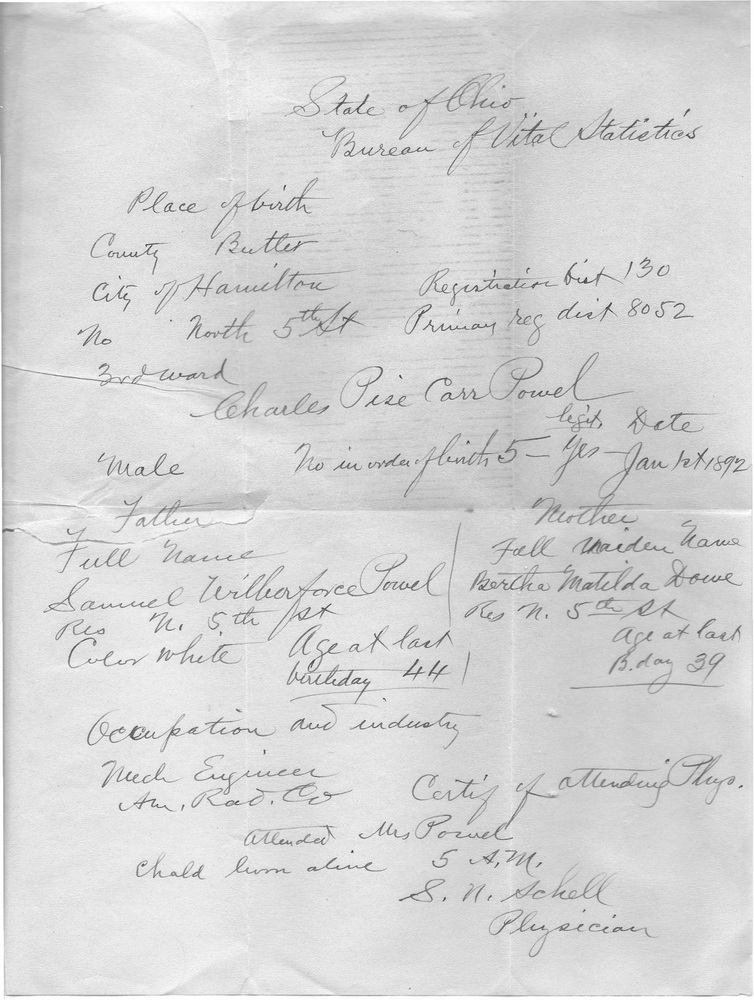 State of Ohio
Bureau of Vital Statistics
Place of birth
County Butler
City of Hamilton
Registration Dist 130
No North 5th St
Primary reg dist 8052
3rd ward
Charles Pise Carr Powel
legit. Date
Male No in order of birth 5 - Yes - Jan 1st 1892
Father
Mother
Full Name
Full Maiden Name
Samuel Wilberforce Powel
Bertha Matilda Dowe
Res N. 5th St
Res N. 5th St
Color White Age at last
birthday 44
Age at last
B.day 39
Occupation and industry
Mech Engineer
Am. Rad. Co
Certif of attending Phys.
attended Mrs Powel
Chald born alive 5 A.M.
S. N. Schell
Physician